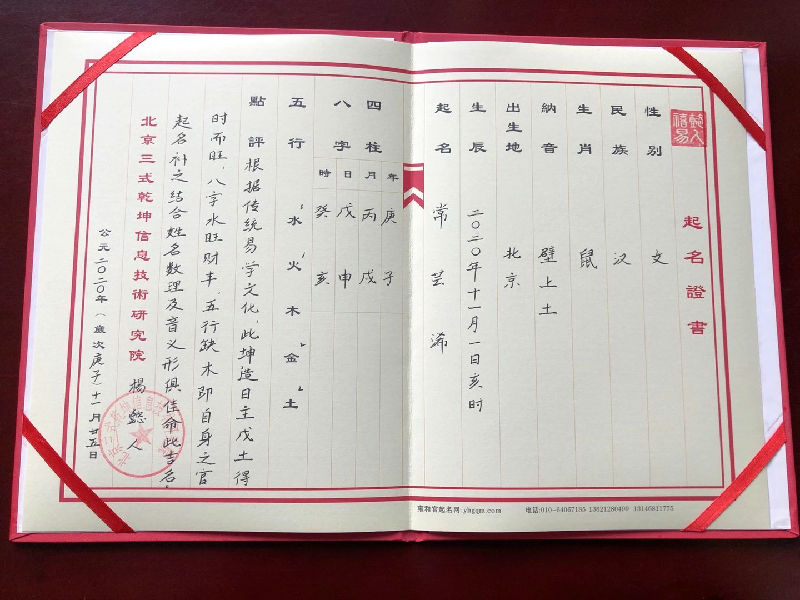 起名證書
性別 女
民族 汉
生肖 鼠
納音 壁上土
出生地 北京
生辰 二〇二〇年十一月一日亥时
起名 常芸浠
四柱 年 庚子 月 丙戌
八字 日 戊申 時 癸亥
五行 水火木金土
點評 根据传统易学文化,此坤造日主戊土得
时而旺,八字水旺财丰,五行缺木即自身之官
起名补之结合姓名数理及音义形俱佳命此吉名.
北京三式乾坤信息技術研究院 楊懿人
公元二〇二〇年(歲次庚子)十一月廿五日
雍和宫起名网:yhgqm.com 电话:010-64067185 13621280499 13146811775